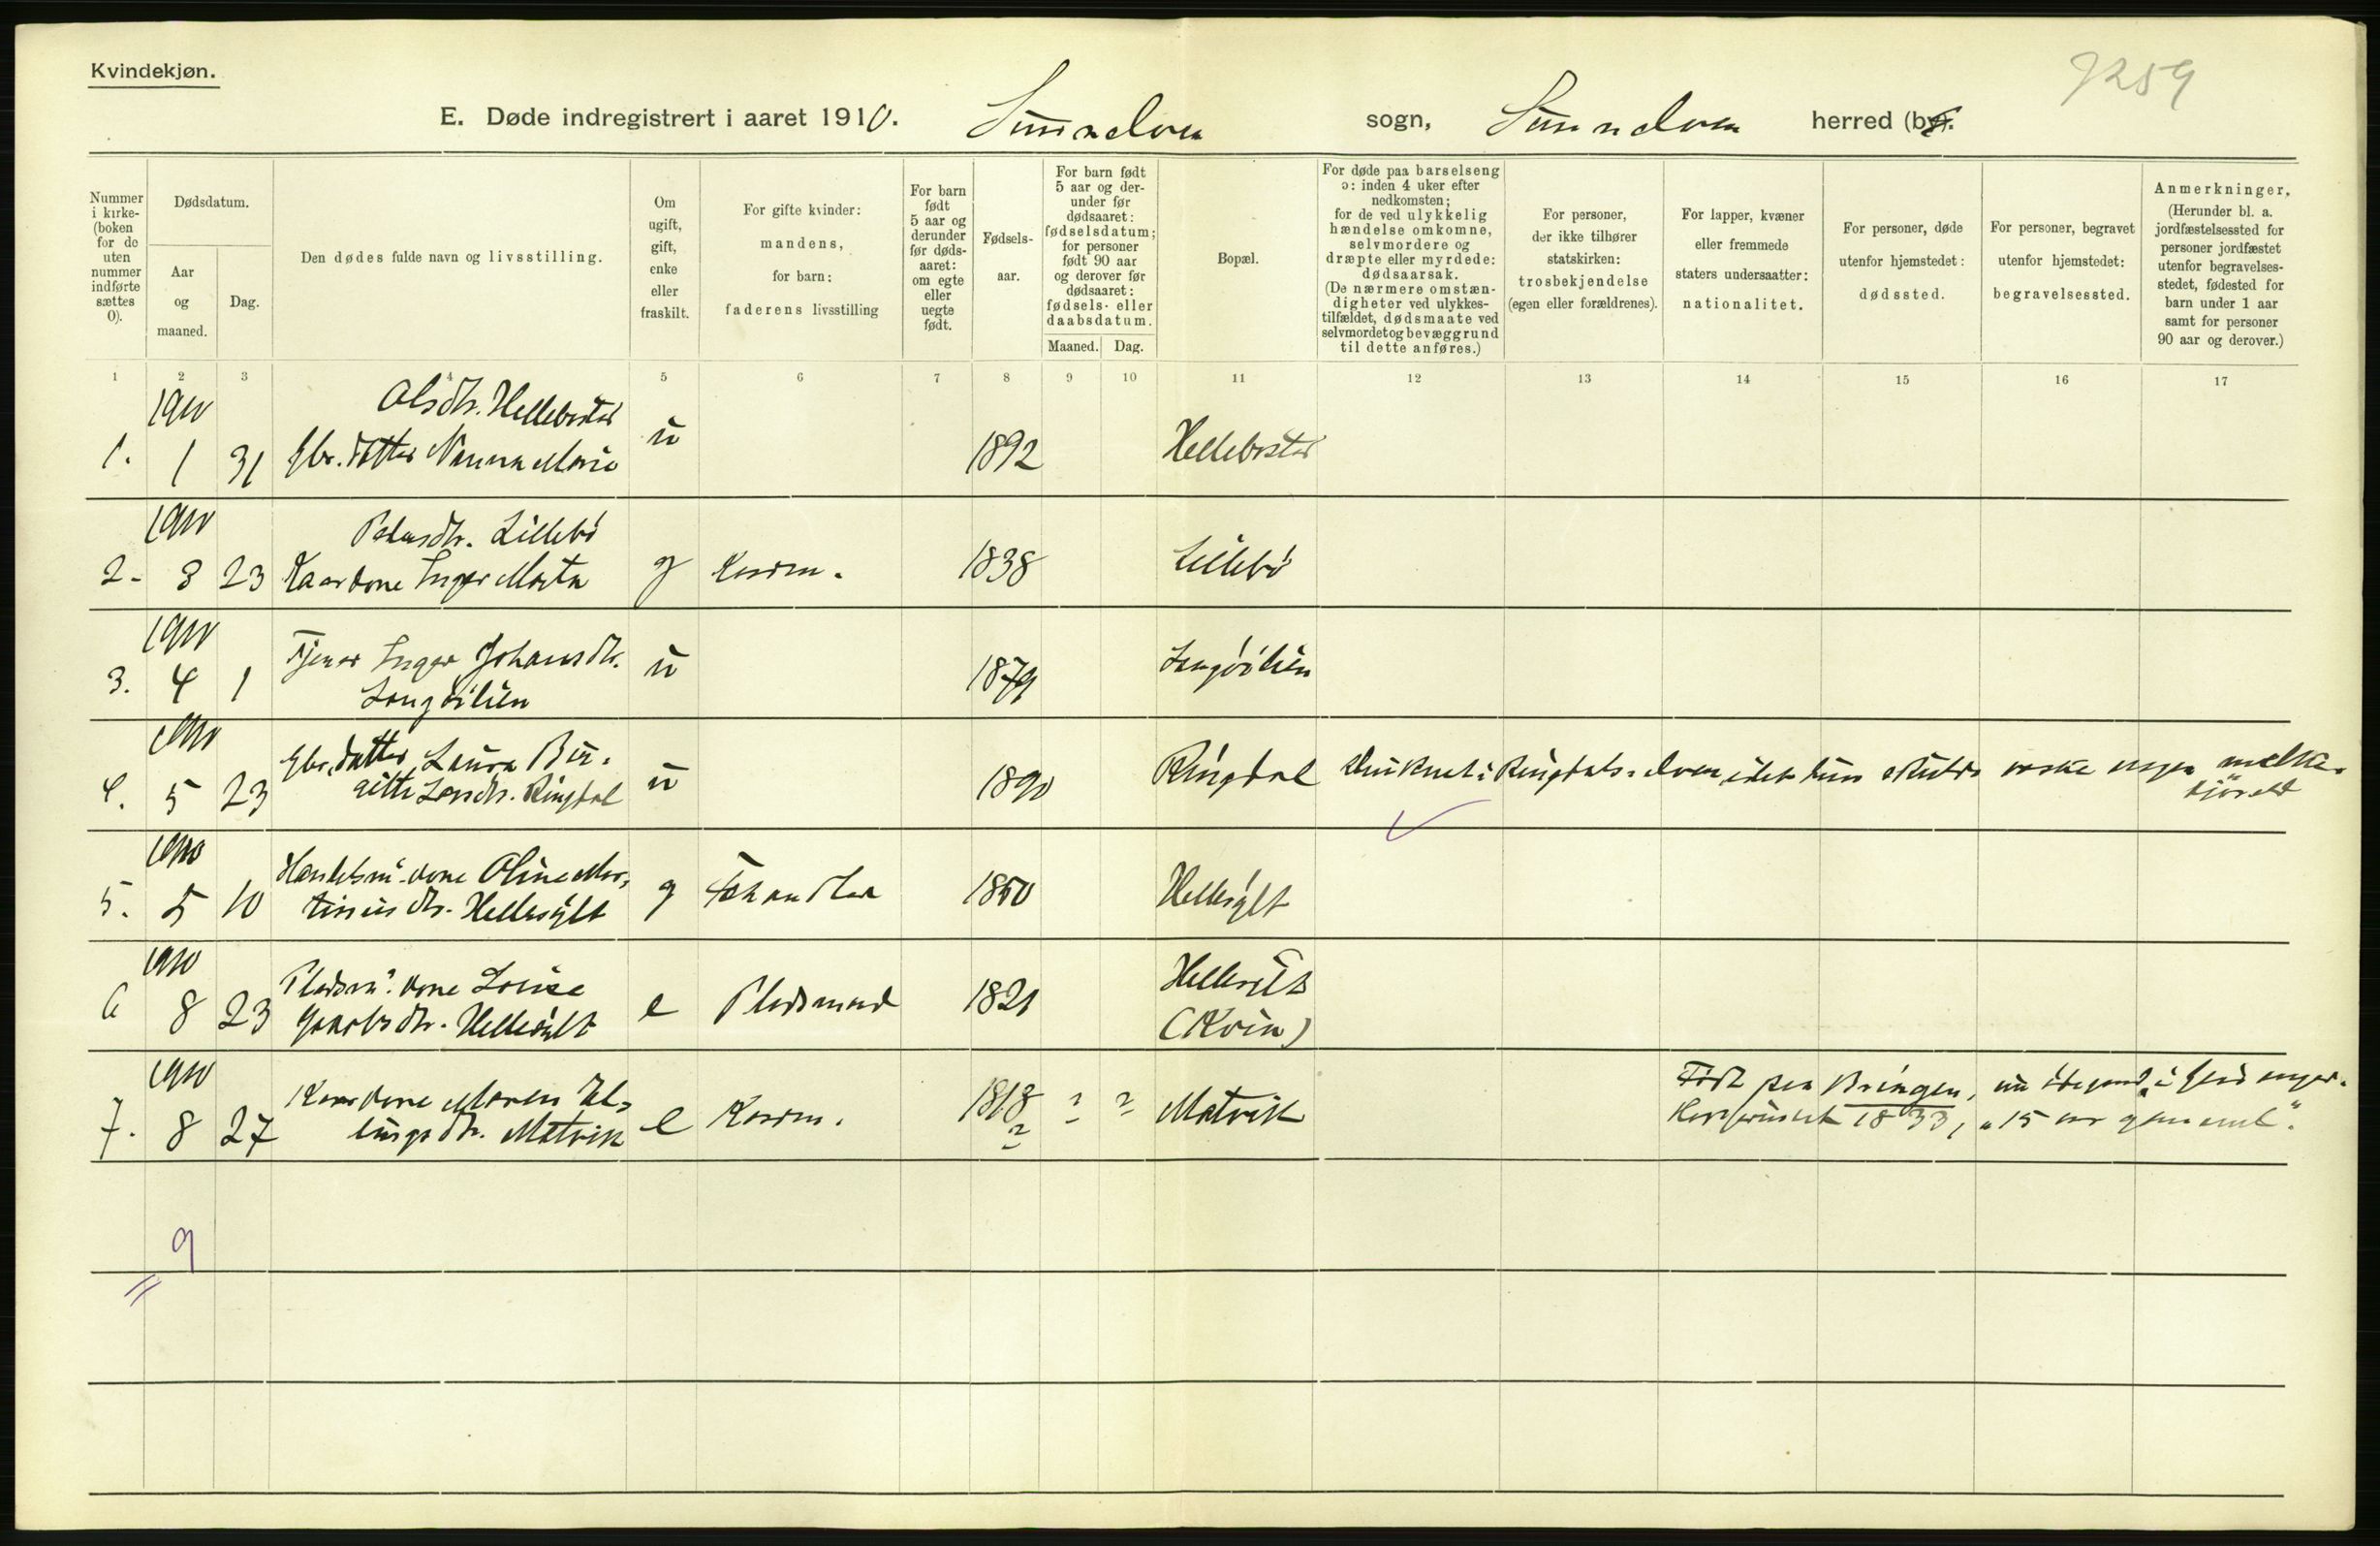 Kvindekjøn.
7259
E. Døde indregistrert i aaret 1910. Sunnelven sogn, Sunnelven herred (by).
Nummer i kirkeboken (for de uten nummer indførte sættes 0).
Dødsdatum.
Aar og maaned.
Dag.
Den dødes fulde navn og livsstilling.
Om ugift, gift, enke eller fraskilt.
For gifte kvinder: mandens, for barn: faderens livsstilling
For barn født 5 aar og derunder før dødsaaret: om egte eller uegte født.
Fødselsaar.
For barn født 5 aar og derunder før dødsaaret: fødselsdatum; for personer født 90 aar og derover før dødsaaret: fødsels- eller daabsdatum.
Maaned. Dag.
Bopæl.
For døde paa barselseng ɔ: inden 4 uker efter nedkomsten; for de ved ulykkelig hændelse omkomne, selvmordere og dræpte eller myrdede: dødsaarsak. (De nærmere omstændigheter ved ulykkestilfældet, dødsmaate ved selvmordet og bevæggrund til dette anføres.)
For personer, der ikke tilhører statskirken: trosbekjendelse (egen eller forældrenes).
For lapper, kvæner eller fremmede staters undersaatter: nationalitet.
For personer, døde utenfor hjemstedet: dødssted.
For personer, begravet utenfor hjemstedet: begravelsessted.
Anmerkninger, (Herunder bl. a. jordfæstelsessted for personer jordfæstet utenfor begravelsesstedet, fødested for barn under 1 aar samt for personer 90 aar og derover.)
1 2 3 4 5 6 7 8 9 10 11 12 13 14 15 16 17
1910 Olsdtr. Hellebostad
1. 1 31 Gbr. datter Nanna Marie u 1892 Hellebostad
1910 Petersdtr. Lillebø
2. 3 23 Kaarkone Inger Marta g Kaarm. 1838 Lillebø
1910 Tjener Inger Johansdtr.
3. 4 1 Langøilien u 1879 Langøilien
1910 Gbr. datter Laura Bir-
4. 5 23 gitte Larsdtr. Ringdal u 1890 Ringdal druknet i Ringdalselven idet hun skulde vaske nogen melke-
kjørel
1910 Handelsm. kone Oline Mar-
5. 5 10 tinusdtr. Hellesylt g Fhandler 1850 Hellesylt
1910 Pladsm. kone Louise
6 8 23 Jakobsdtr. Hellesylt e Pladsmand 1821 Hellesylt (Kvien)
1910 Kaarkone Maren El-
7. 8 27 lingsdtr. Matvik e Kaarm. 1818 ? ? ? Matvik
Født paa Bringen, i Geiranger.
1833, "15 aar gammel".
9